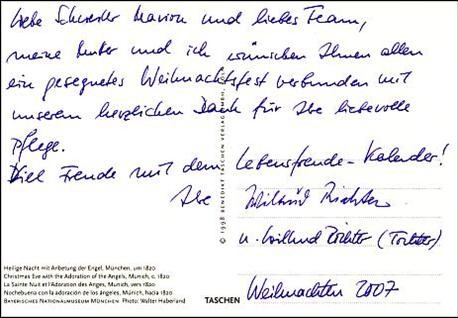 Liebe Schwester Marion und liebes Team,
meine Mutter und ich wünschen Ihnen allen
ein gesegnetes Weihnachtsfest verbunden mit
unserem herzlichen Dank für Ihre liebevolle
Pflege.
Viel Freude mit dem Lebensfreude-Kalender!
Ihre
Richter
u. Richter (Tochter)
Weihnachten 2007
© 1998 BENEDIKT TASCHEN VERLAG GMBH
Heilige Nacht mit Anbetung der Engel, München, um 1820
Christmas Eve with the Adoration of the Angels, Munich, c. 1820
La Sainte Nuit et l'Adoration des Anges, Munich, vers 1820
Nochebuena con la adoración de los ángeles, Múnich, hacia 1820
BAYERISCHES NATIONALMUSEUM MÜNCHEN Photo: Walter Haberland
TASCHEN